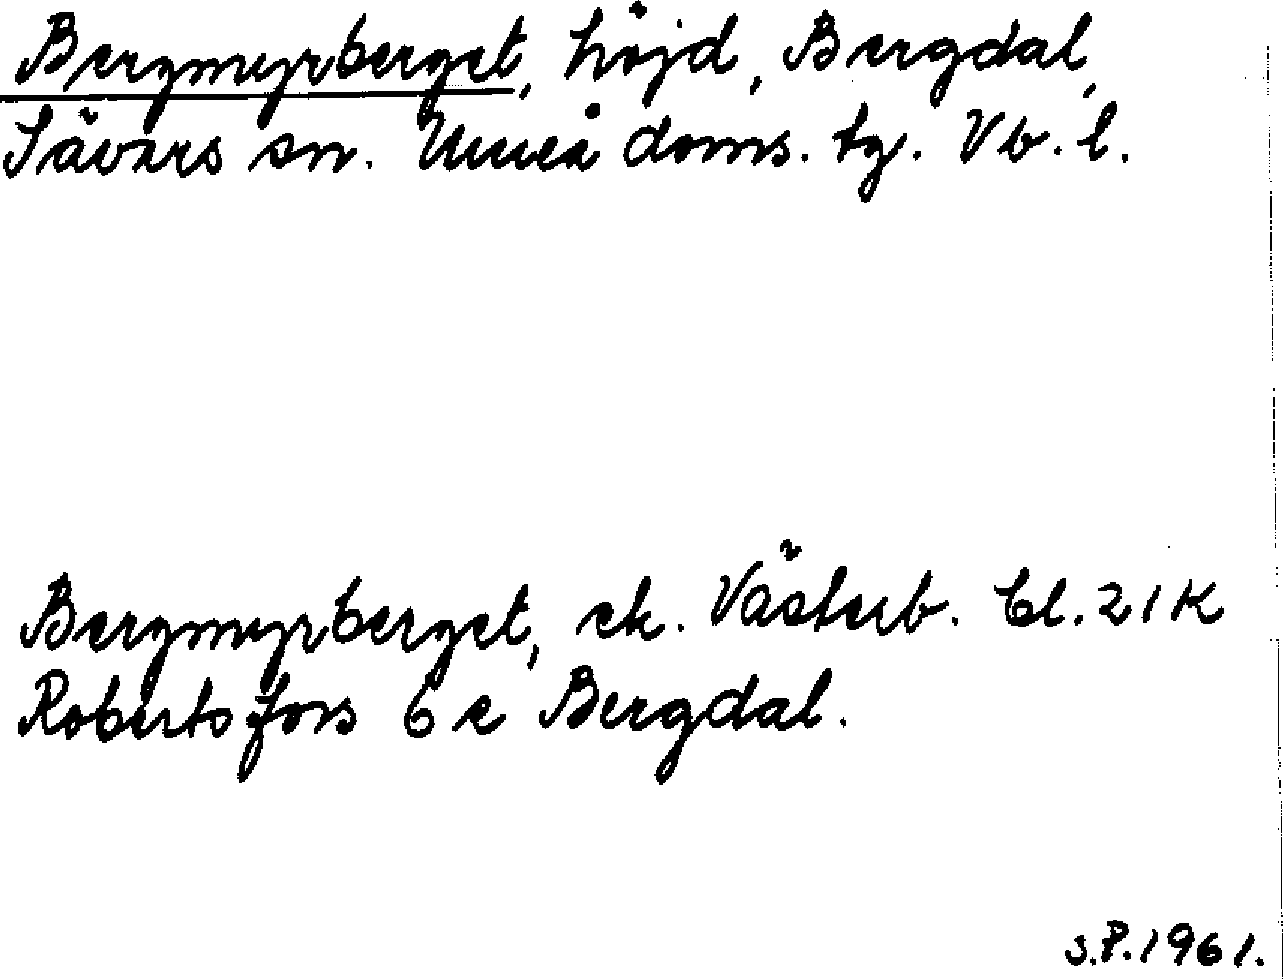 Bergmyrberget, höjd, Bergdal,
Sävars sn. Umeå doms. tg. Vb. l.
Bergmyrberget, ek. Västerb. bl. 21K
Robertsfors 6 e Bergdal.
S.P. 1961.